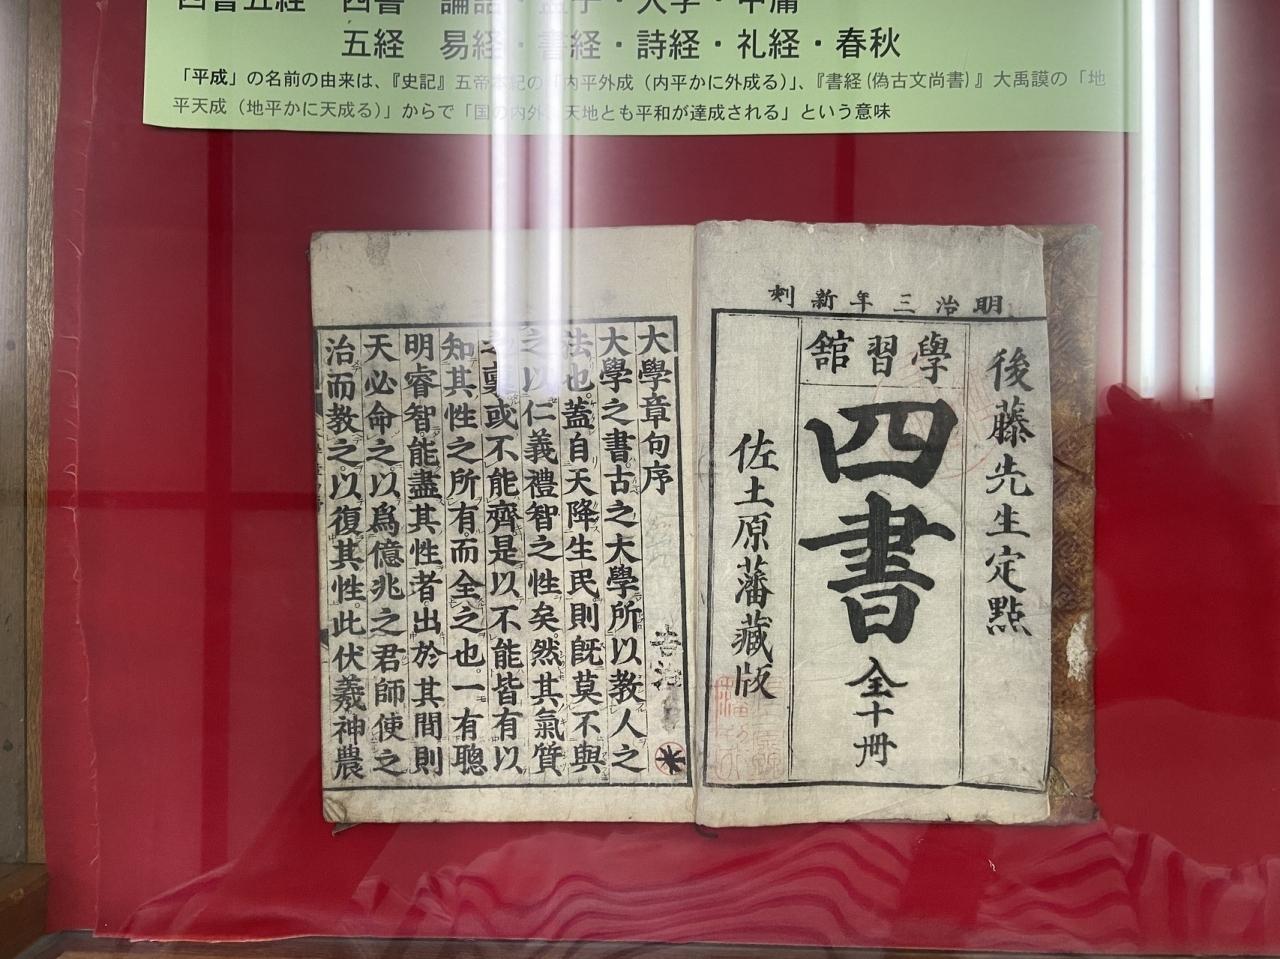 四書五経　四書　論語・孟子・大学・中庸
五経　易経・書経・詩経・礼経・春秋
「平成」の名前の由来は、『史記』五帝本紀の「内平外成（内平かに外成る）」、『書経(偽古文尚書)』大禹謨の「地
平天成（地平かに天成る）」からで「国の内外、天地とも平和が達成される」という意味
明治三年新刻
後藤先生定點
學習舘
四書
全十冊
佐土原藩藏版
大學章句序
大學之書古之大學所以教人之
法也蓋自天降生民則既莫不與
之以仁義禮智之性矣然其氣質
之稟或不能齊是以不能皆有以
知其性之所有而全之也一有聰
明睿智能盡其性者出於其間則
天必命之以爲億兆之君師使之
治而教之以復其性此伏羲神農